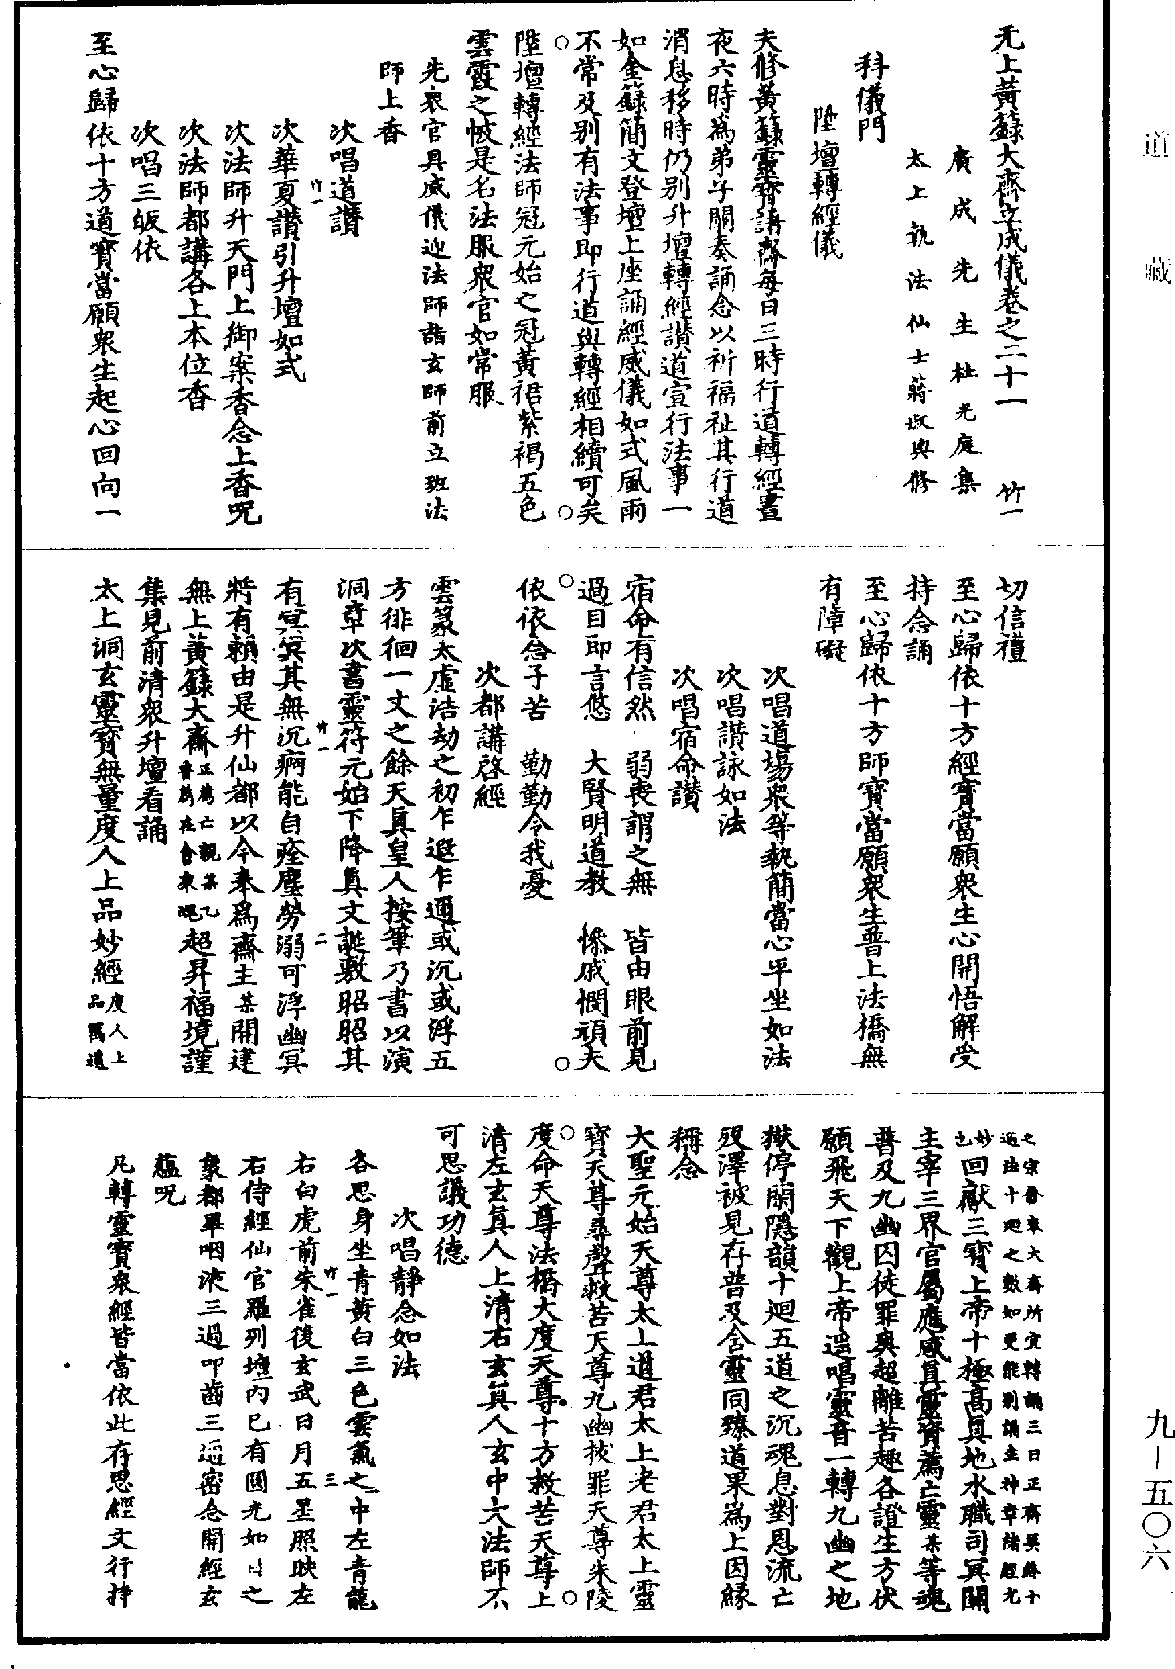 道藏
九—五〇六
无上黃籙大齋立成儀卷之二十一　竹一
廣成先生杜光庭集
太上執法仙士蔣叔輿修
科儀門
陞壇轉經儀
夫修黃籙靈寶講齋每日三時行道轉經晝
夜六時爲弟子關奏誦念以祈福祉其行道
消息移時仍別升壇轉經讃道宣行法事一
如金籙簡文登壇上座誦經威儀如式風雨
不常及別有法事即行道與轉經相續可矣
陞壇轉經法師冠元始之冠黃裙紫褐五色
雲霞之帔是名法服衆官如常服
先衆官具威儀迎法師詣玄師前立班法
師上香
次唱道讃
次華夏讃引升壇如式
次法師升天門上御案香念上香呪
次法師都講各上本位香
次唱三皈依
至心歸依十方道寶當願衆生起心回向一
切信禮
至心歸依十方經寶當願衆生心開悟解受
持念誦
至心歸依十方師寶當願衆生普上法橋無
有障礙
次唱道場衆等執簡當心平坐如法
次唱讃詠如法
次唱宿命讃
宿命有信然　弱喪謂之無　皆由眼前見
過目即言悠　大賢明道教　慘慼憫頑夫
依依念子苦　勤勤令我憂
次都講啓經
雲篆太虛浩劫之初乍遐乍邇或沉或浮五
方徘徊一丈之餘天真皇人按筆乃書以演
洞章次書靈符元始下降真文誕敷昭昭其
有冥冥其無沉痾能自痊塵勞溺可浮幽冥
將有賴由是升仙都以今奉爲齋主某開建
無上黃籙大齋正薦亡親某乙普爲在會衆魂超昇福境謹
集見前清衆升壇看誦
太上洞玄靈寶無量度人上品妙經度人上品萬遍
之宗會衆大齋所宜轉誦三日正齋具錄十
遍法十迴之數如更能別誦生神章諸經尤
妙也回獻三寶上帝十極高真地水職司冥關
主宰三界官屬應感真靈資薦亡靈某等魂
普及九幽囚徒罪奐超離苦趣各證生方伏
願飛天下觀上帝遥唱靈音一轉九幽之地
獄停關隱韻十迴五道之沉魂息對恩流亡
歿澤被見存普及含靈同臻道果爲上因緣
稱念
大聖元始天尊太上道君太上老君太上靈
寶天尊尋聲救苦天尊九幽拔罪天尊朱陵
度命天尊法橋大度天尊十方救苦天尊上
清左玄真人上清右玄真人玄中大法師不
可思議功德
次唱靜念如法
各思身坐青黃白三色雲氣之中左青龍
右白虎前朱雀後玄武日月五星照映左
右侍經仙官羅列壇內已有圓光如日之
象都畢咽液三過叩齒三通密念開經玄
蘊呪
凡轉靈寶衆經皆當依此存思經文行持